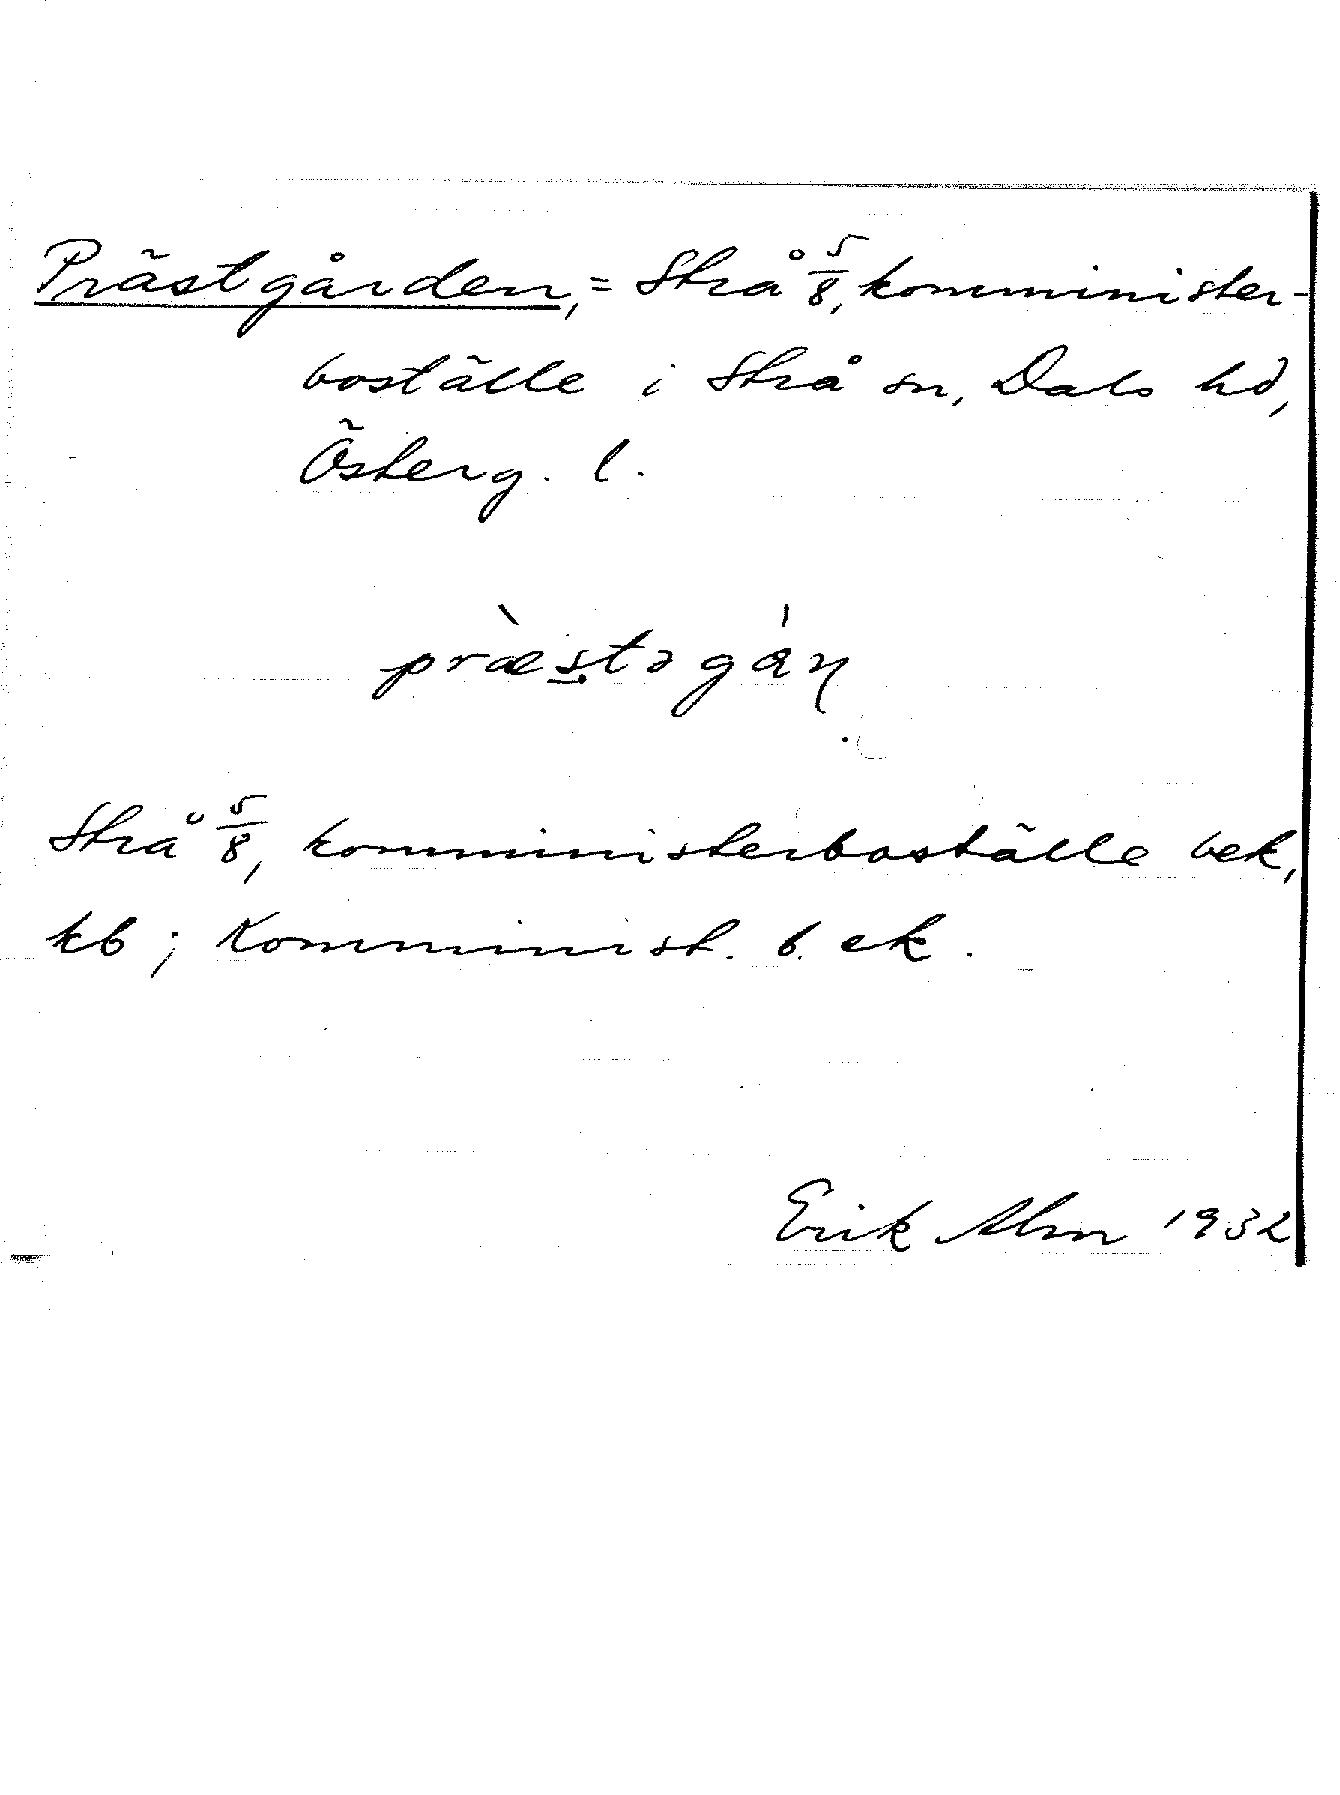 Prästgården, = Strå 5/8, komminister-
boställe i Strå sn, Dals hd,
Österg. l.
præ̀stəgán
Strå 5/8, komministerboställe bek,
kb; Komminist. b. ek.
Erik Alm 1932